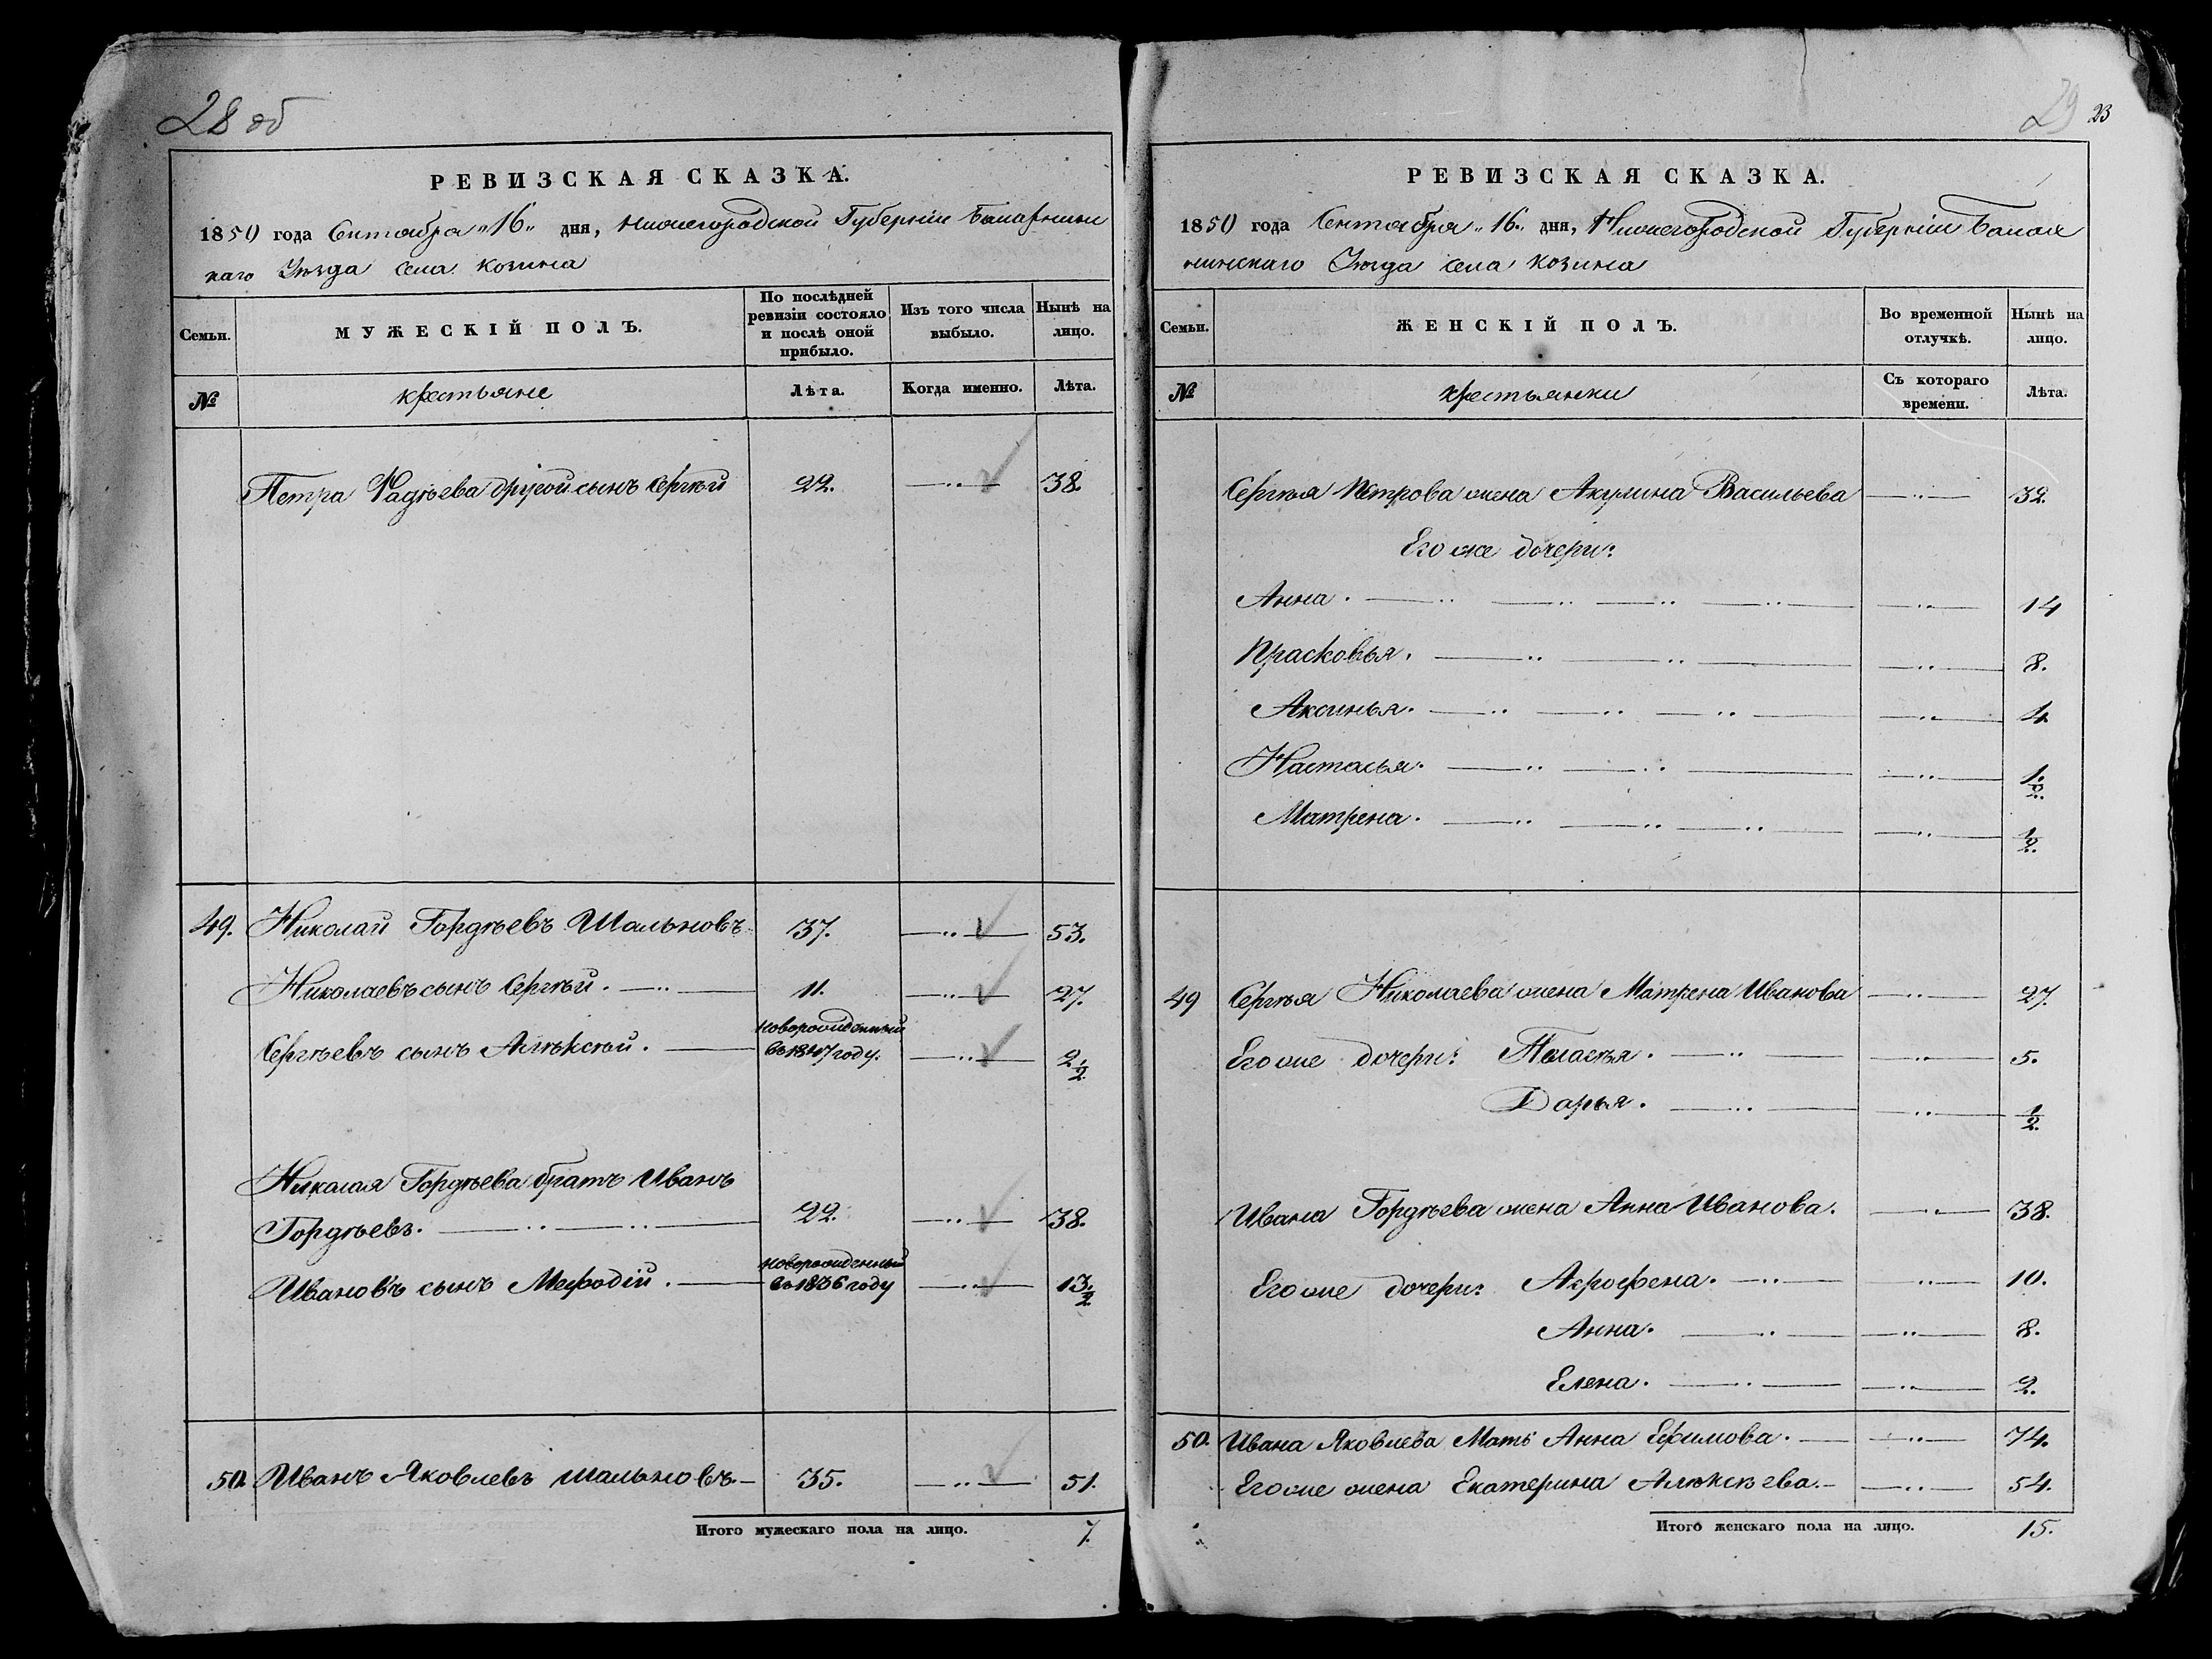 28 об
РЕВИЗСКАЯ СКАЗКА.
1850 года Сентября „16„ дня, Нижегородской Губерніи Балахнин
скаго Уѣзда села Козина
Семьи.
МУЖЕСКІЙ ПОЛЪ.
По послѣдней ревизіи состояло и послѣ оной прибыло.
Изъ того числа выбыло.
Нынѣ на лицо.
№
крестьяне
Лѣта.
Когда именно.
Лѣта.
Петра Фадѣева другой сынъ Сергѣй 22. —„— 38.
49. Николай Гордѣевъ Шальновъ 37. —„— 53.
Николаевъ сынъ Сергѣй. —„— 11. —„— 27.
Сергѣевъ сынъ Алѣксѣй. — новорожденный въ 1847 году. —„— 2 1/2
Николая Гордѣева братъ Иванъ
Гордѣевъ. —„—„— 22. —„— 38.
Ивановъ сынъ Мефодій. — новорожденный въ 1836 году —„— 13 1/2
50. Иванъ Яковлевъ Шальновъ — 35. —„— 51.
Итого мужескаго пола на лицо. 7.
29 23
РЕВИЗСКАЯ СКАЗКА.
1850 года Сентября „16„ дня, Нижегородской Губерніи Балах
нинскаго Уѣзда села Козина
Семьи.
ЖЕНСКІЙ ПОЛЪ.
Во временной отлучкѣ.
Нынѣ на лицо.
№
крестьянки
Съ котораго времени.
Лѣта.
Сергѣя Петрова жена Акулина Васильева —„— 32.
Его же дочери:
Анна. —„— 14
Прасковья. —„— 8.
Аксинья. —„— 4.
Настасья. —„— 1 1/2.
Матрена. —„— 1/2.
49 Сергѣя Николаева жена Матрена Иванова —„— 27.
Его же дочери: Пеласѣя. —„— 5.
Дарья. —„— 1/2.
Ивана Гордѣева жена Анна Иванова. —„— 38.
Его же дочери: Аграфена. —„— 10.
Анна. —„— 8.
Елена. —„— 2.
50. Ивана Яковлева Мать Анна Ефимова. —„— 74.
Его же жена Екатерина Алѣксѣева. —„— 54.
Итого женскаго пола на лицо. 15.